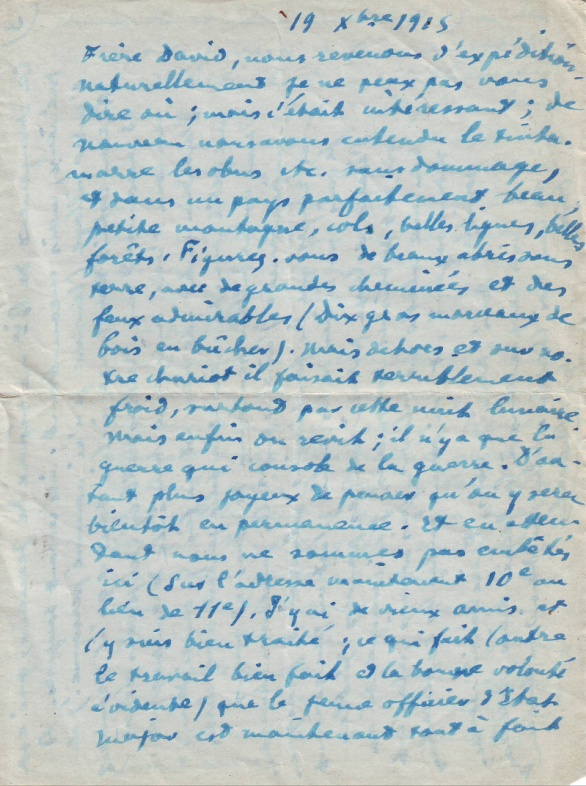 19 Xbre 1915
Frère David, nous revenons d'expédition
naturellement je ne peux pas vous
dire où ; mais c'était intéressant ; de
nouveau nous avons entendu le tinta-
marre les obus etc. sans dommage,
et dans un pays parfaitement beau,
petite montagne, cols, belles lignes, belles
forêts. Figurez-vous de beaux abris sous
terre, avec de grandes cheminées et des
feux admirables (Dix gros morceaux de
bois en bûcher). Mais dehors et sur no-
tre chariot il faisait terriblement
froid, surtout par cette nuit lunaire.
Mais enfin on revit ; il n'y a que la
guerre qui console de la guerre. D'au-
tant plus joyeux de penser qu'on y sera
bientôt en permanence. Et en atten
dant nous ne sommes pas embêtés
ici (Sur l'adresse maintenant 10e au
lieu de 11e). J'y ai de vieux amis et
j'y suis bien traité ; ce qui fait (outre
le travail bien fait et la bonne volonté
évidente) que le jeune officier d'Etat
major est maintenant tout à fait